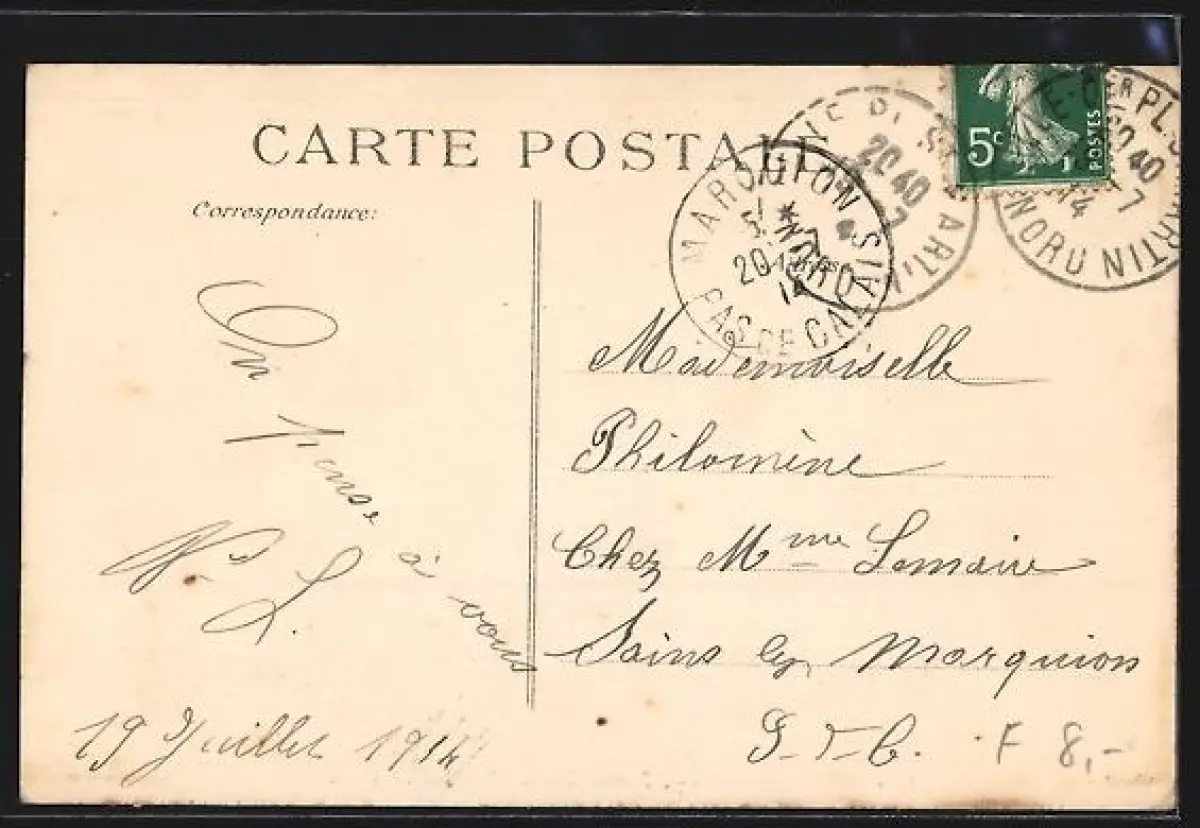 CARTE POSTALE
Correspondance:
5c
POSTES
MARQUION
PAS DE CALAIS
5 *
20
14
20 40
NORD
20 40
7
14
NORD
On pense à vous
L.
19 Juillet 1914
Mademoiselle
Philomène
Chez Mme Lemaire
Sains lez Marquion
P-d-C.
F 8,-